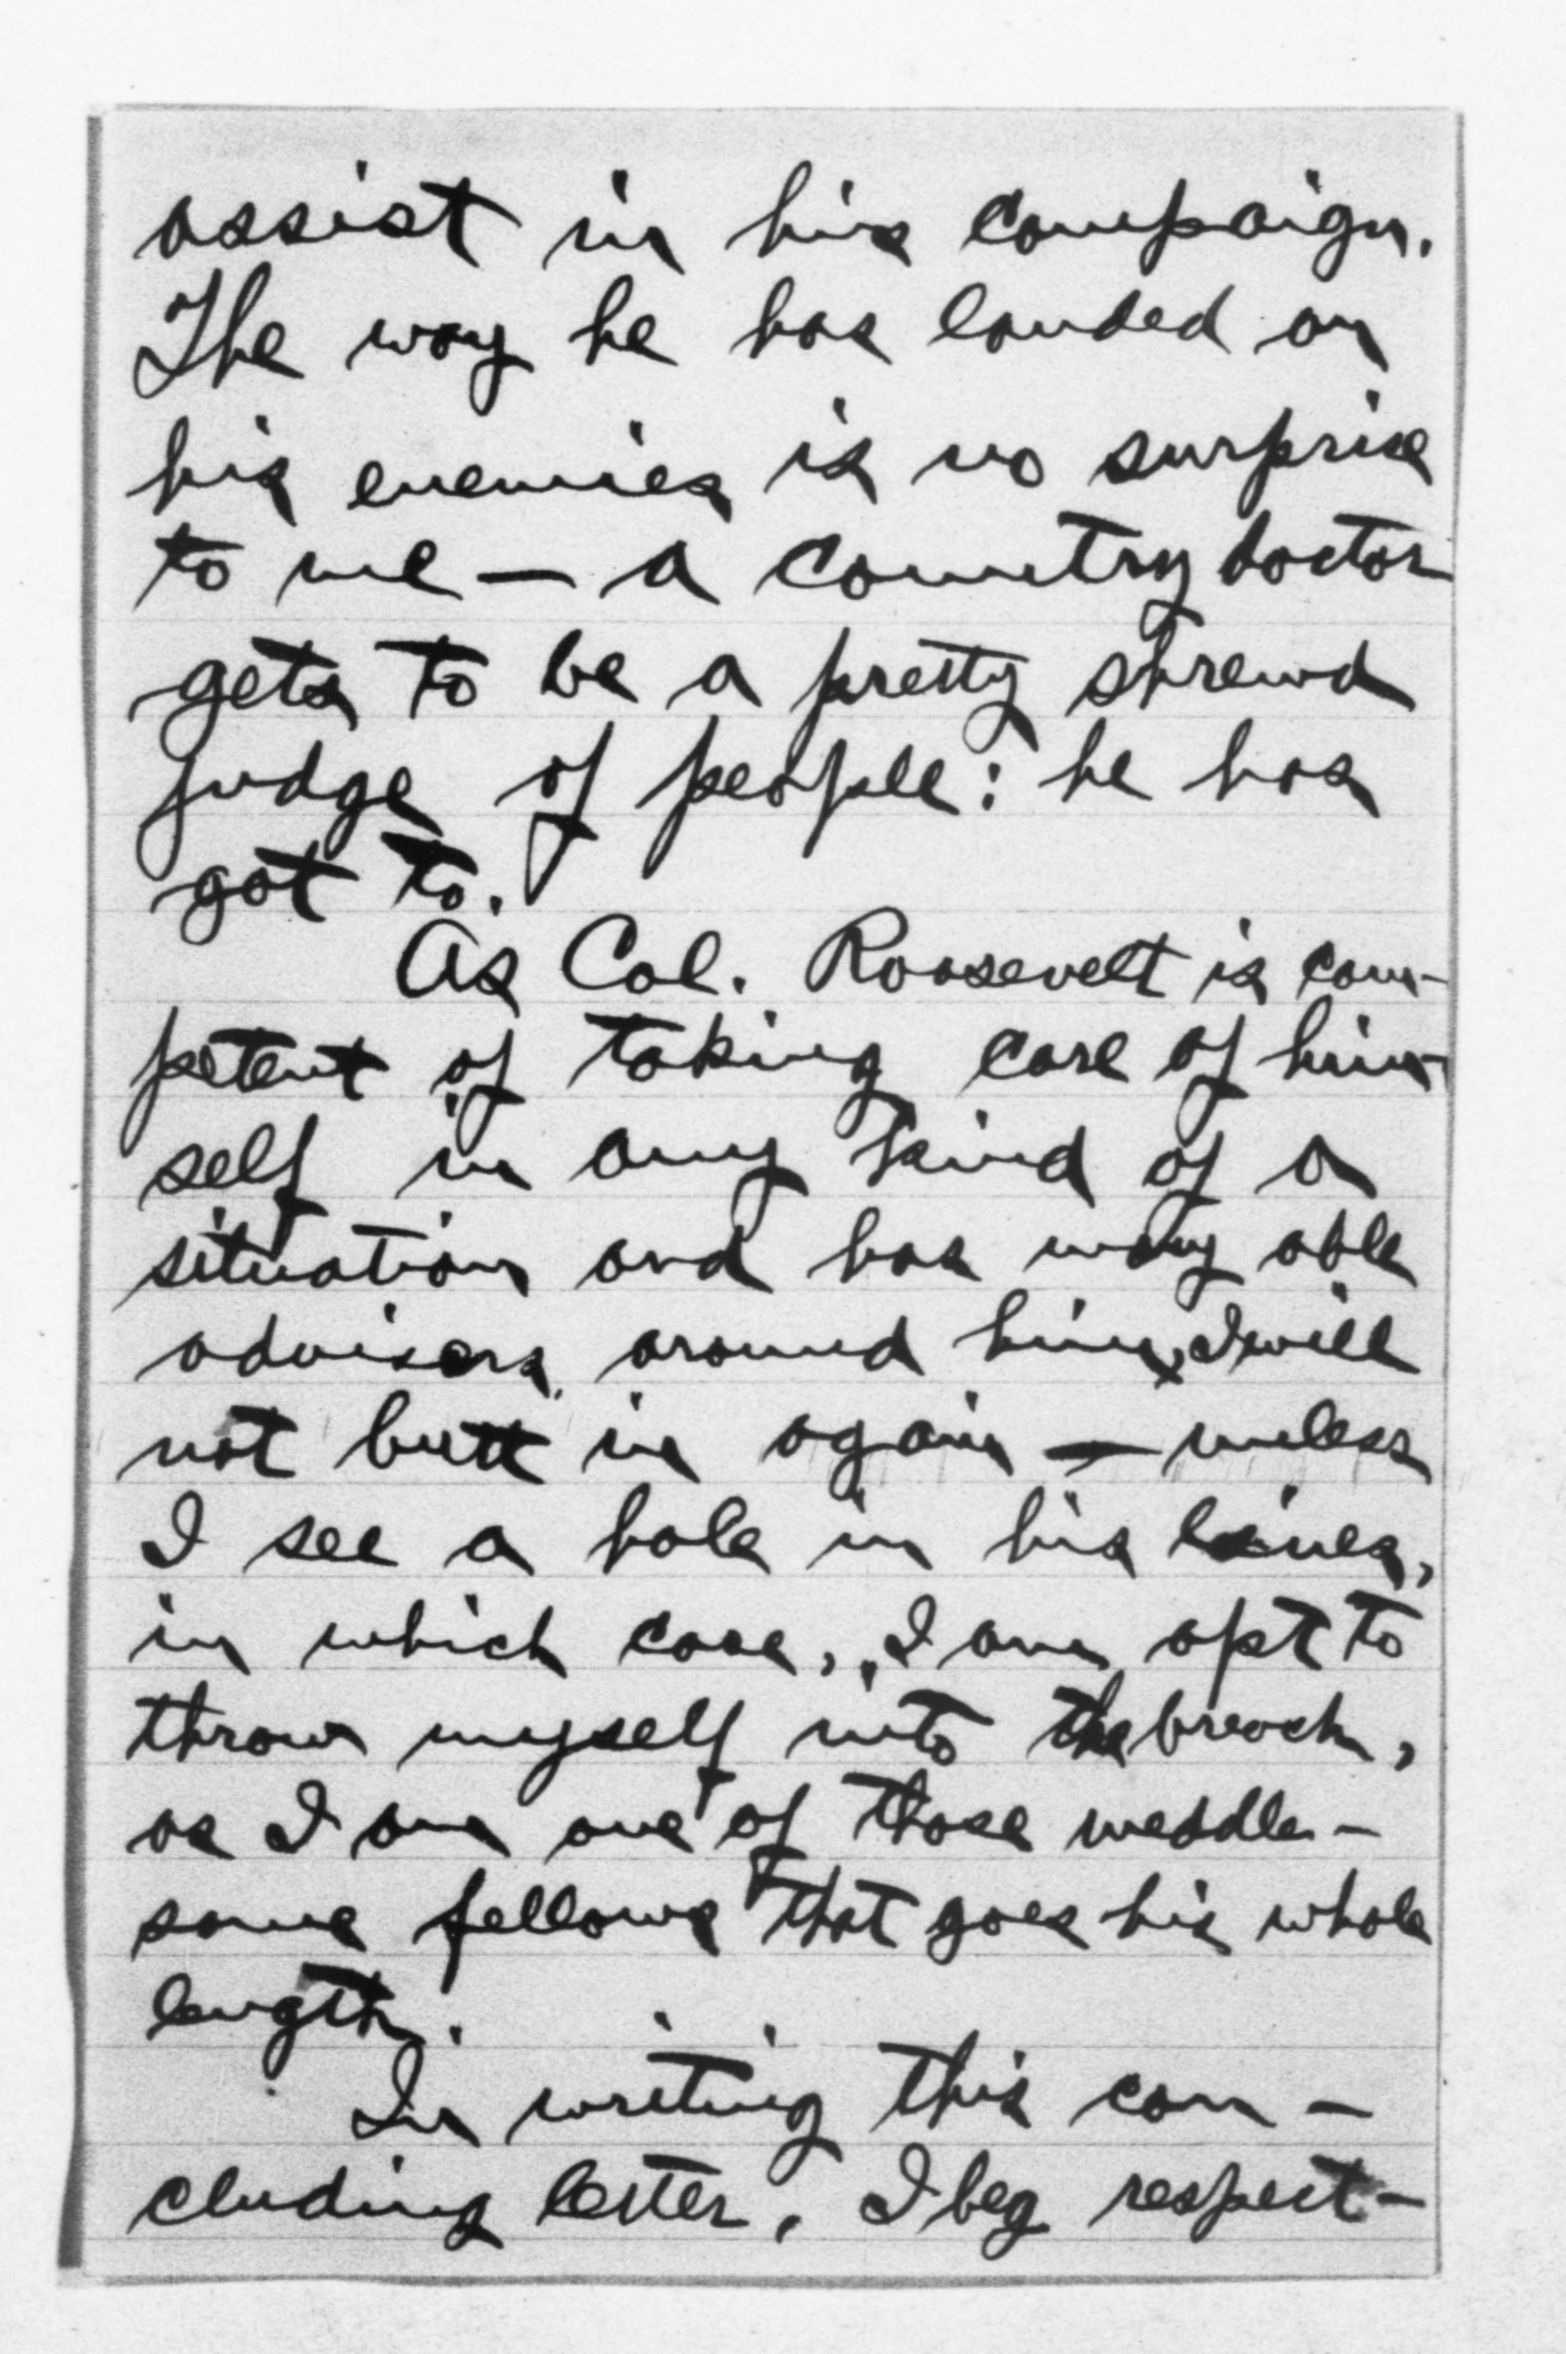 assist in his campaign.
The way he has landed on
his enemies is no surprise
to me — a country doctor
gets to be a pretty shrewd
judge of people: he has
got to.
As Col. Roosevelt is com-
petent of taking care of him-
self in any kind of a
situation and has many able
advisers around him, I will
not butt in again — unless
I see a hole in his lines,
in which case, I am apt to
throw myself into the breach,
as I am one of those meddle-
some fellows that goes his whole
length.
In writing this con-
cluding letter, I beg respect-